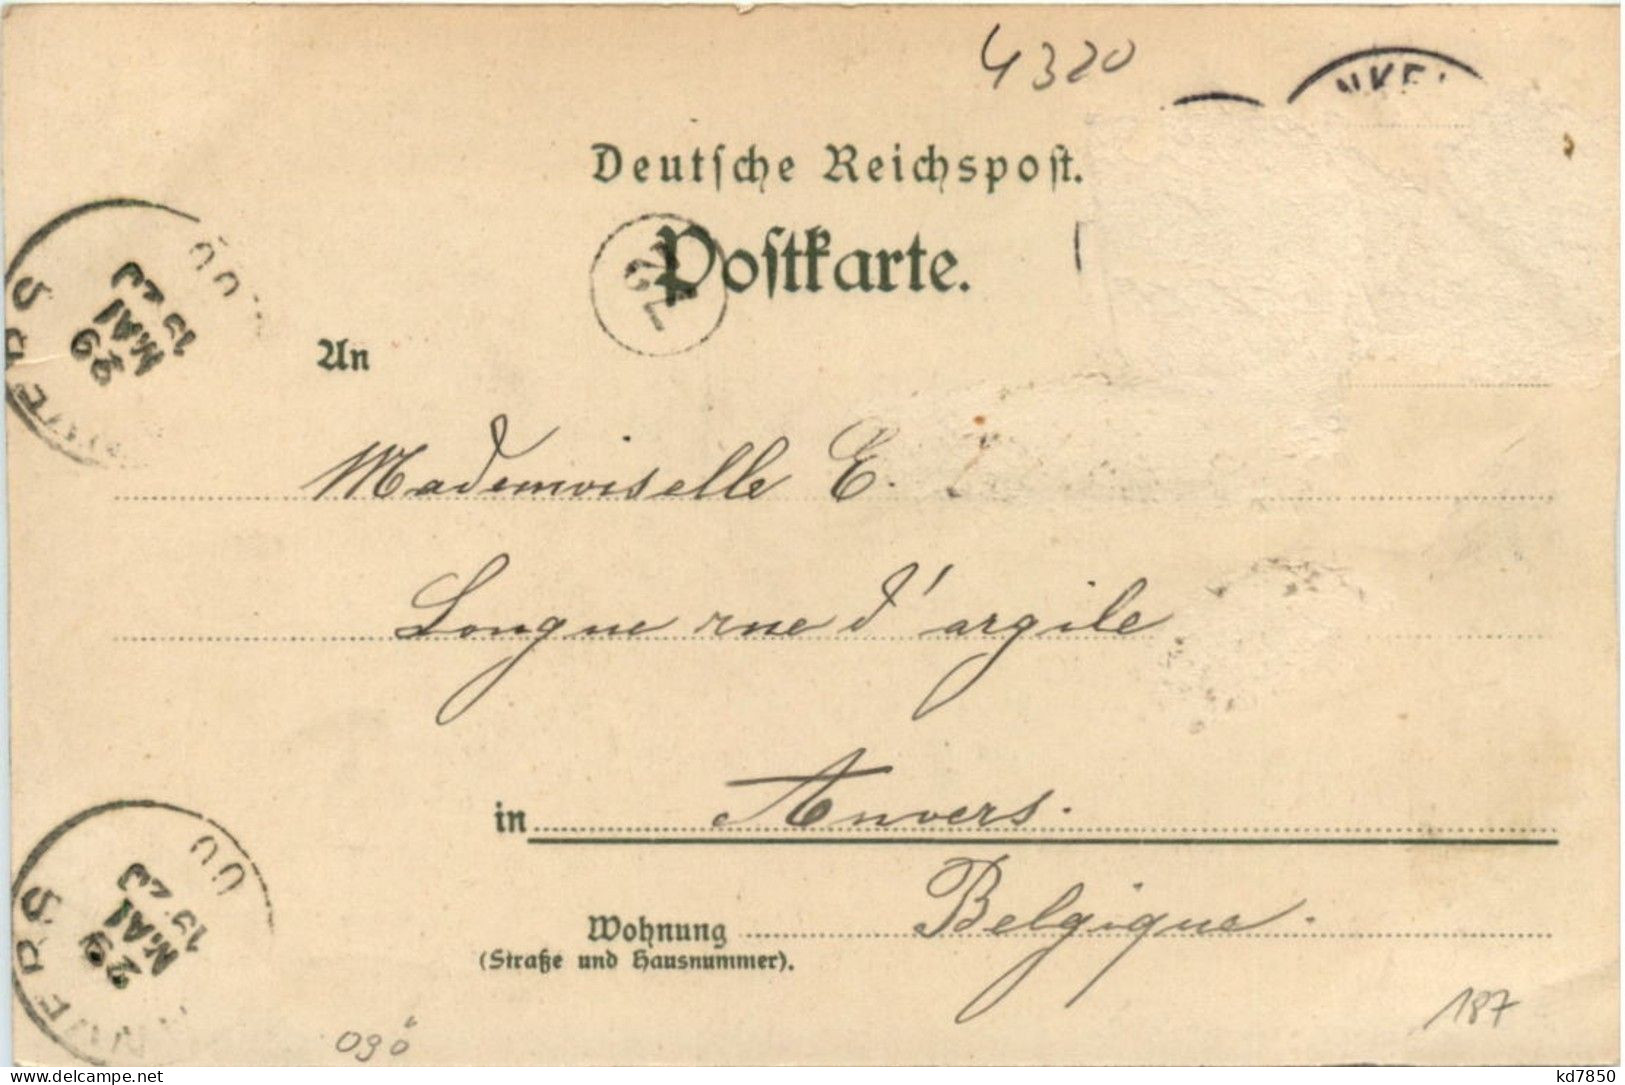 4320
Deutsche Reichspost.
Postkarte.
An
Mademoiselle E.
Longue rue d'argile
in Anvers.
Belgique.
Wohnung
(Straße und Hausnummer).
29
MAI
29
MAI
187
delcampe.net
kd7850